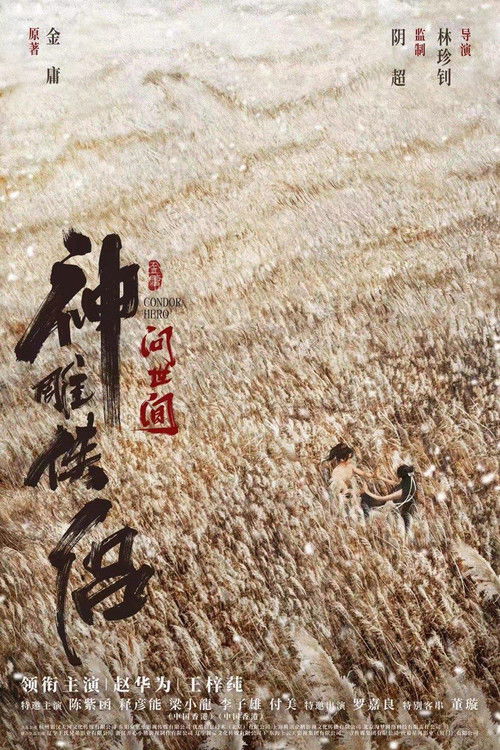 导演
林珍钊
监制
阴超
金庸
原著
神雕侠侣
金庸
CONDOR HERO
问世间
领衔主演 | 赵华为 | 王梓莼
特邀主演 陈紫函 释彦能 梁小龍 李子雄 付美 特邀出演 罗嘉良 特别客串 董璇
(中国香港) (中国香港)